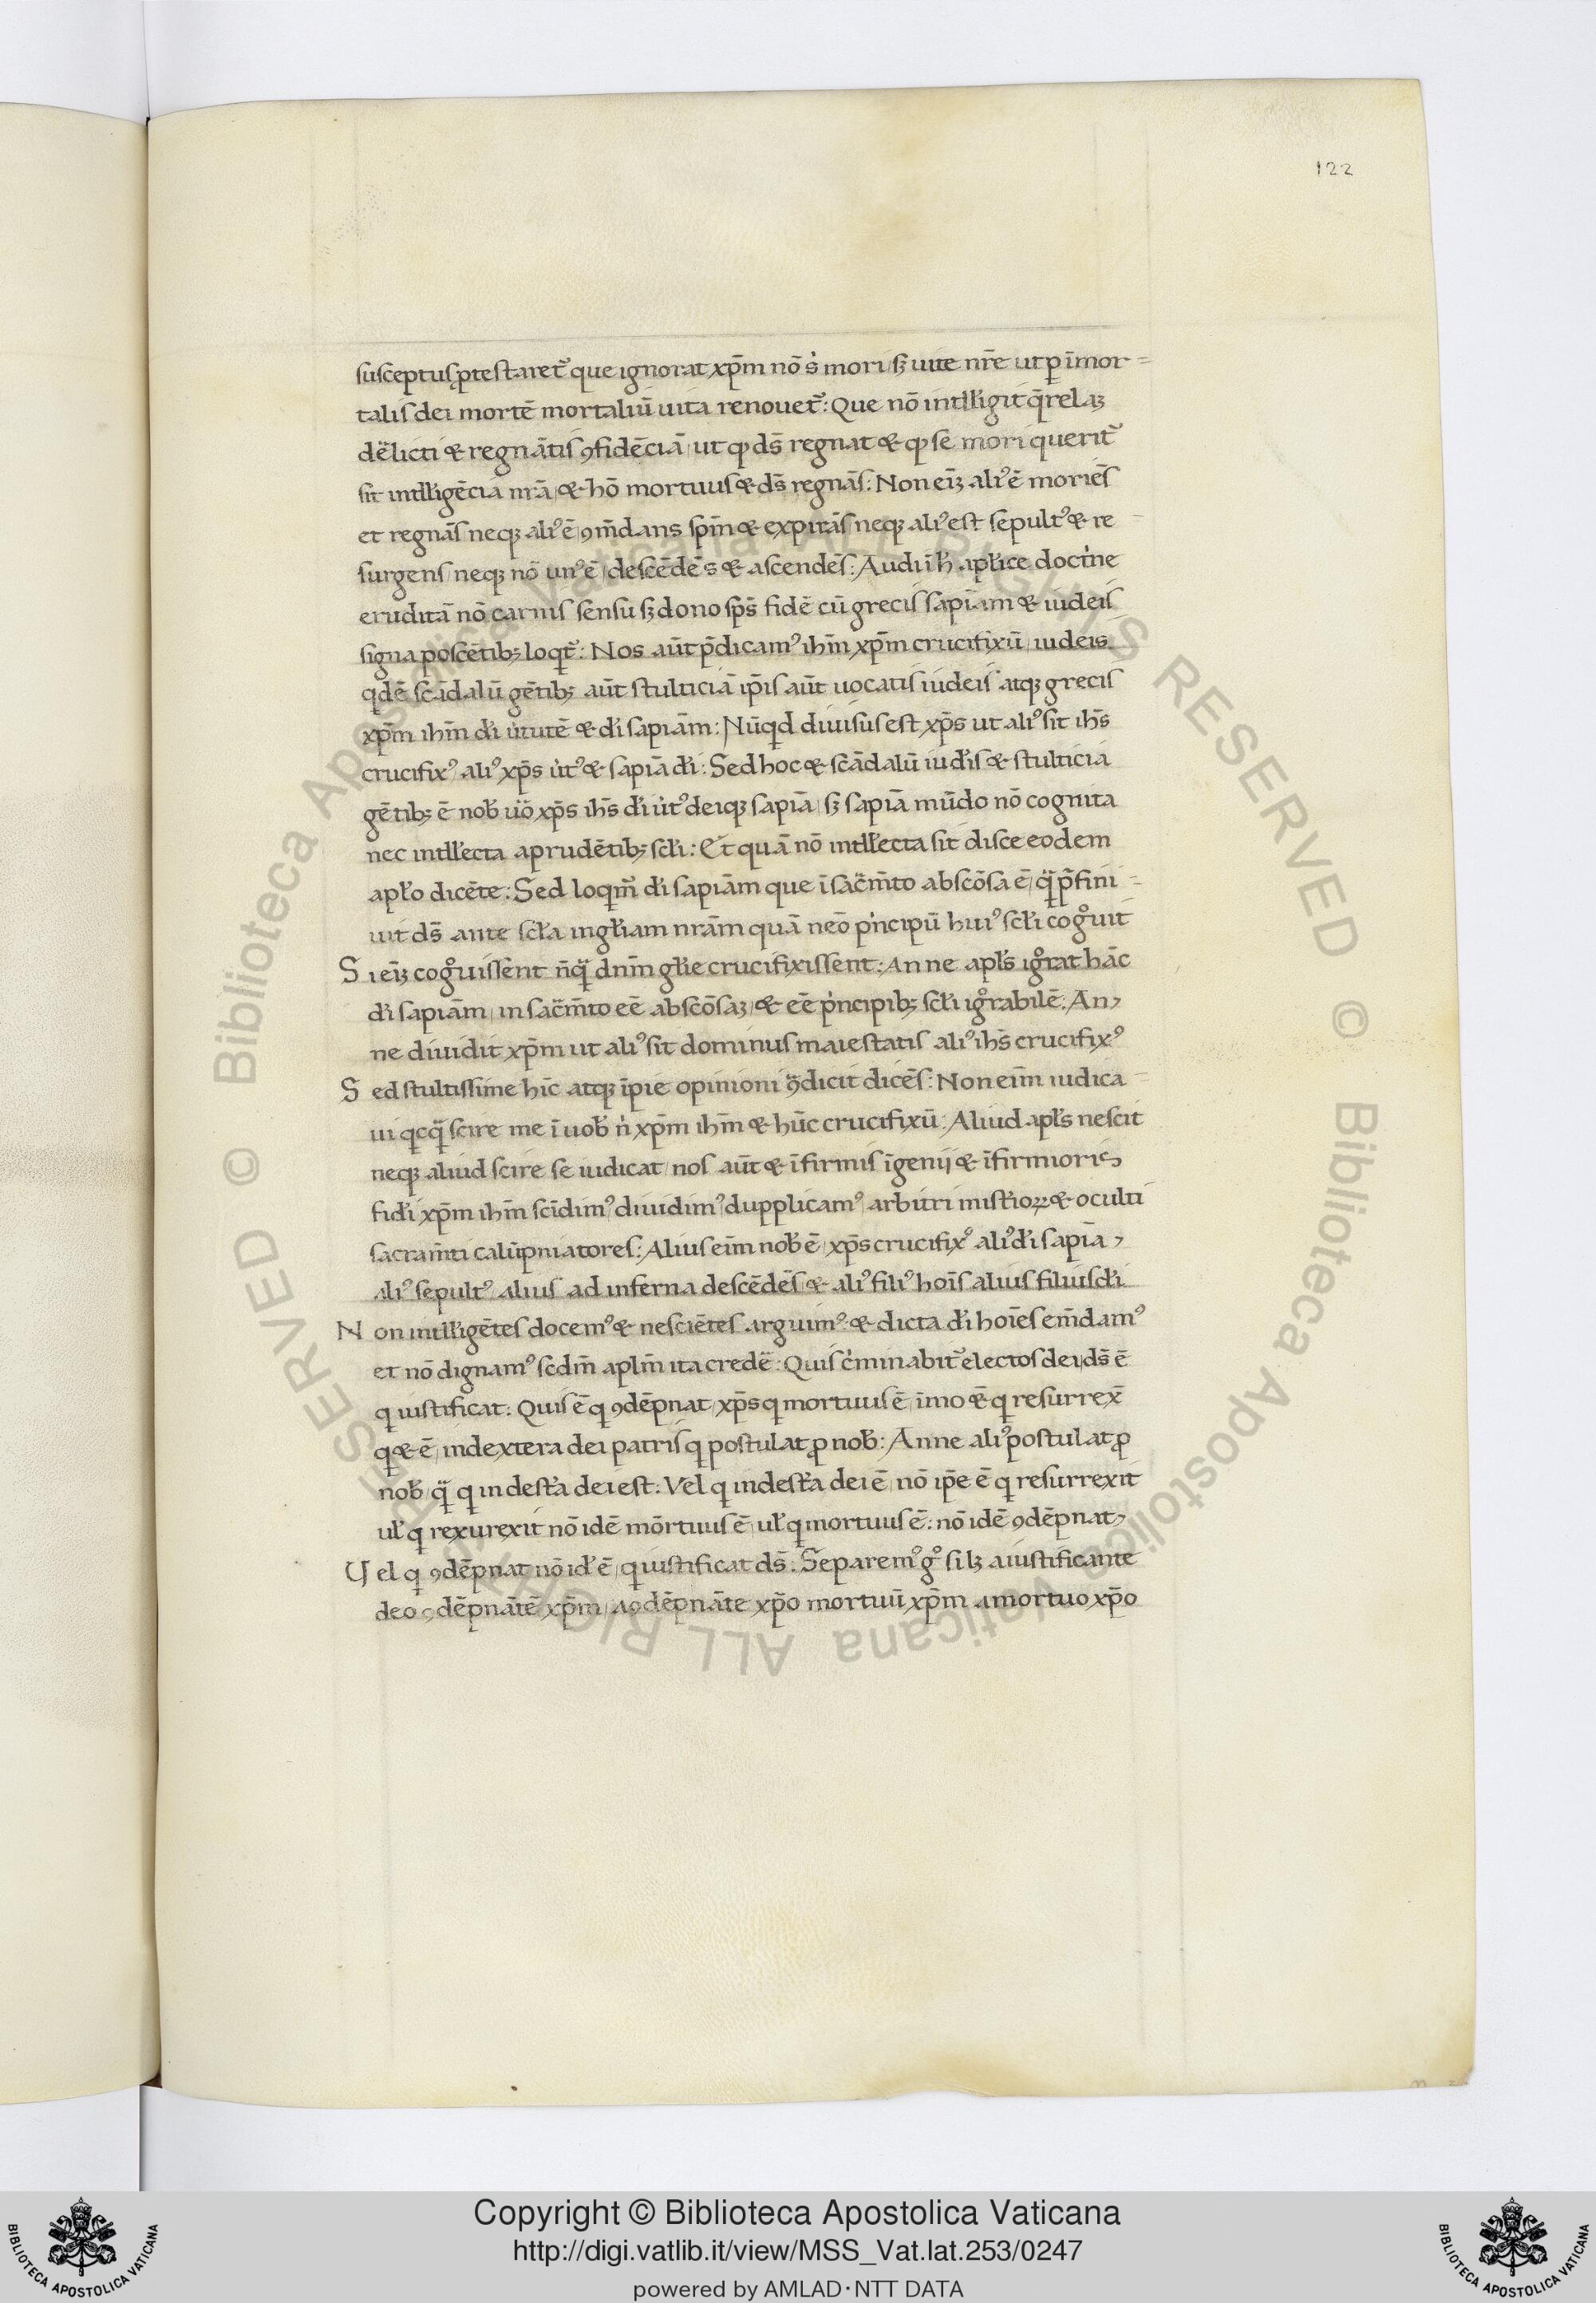 122
susceptus p̱testaret᷑ que ignorat xp̄m nō ṡ mori sꝫ uite nr̄e ut ꝑ īmor=
talis dei mortē mortaliū uita renouet᷑: Que nō intll̓igit q̄relaꝫ
dël̈icti & regnātis ꝯfidēciā, ut ꝙ ds̄ regnat & ꝙ se mori querit᷑
sit intll̓igēcia nrā, & hō mortuus & ds̄ regnās: Non eīꝫ aliꝰ ē moriēs
et regnās neqꝫ aliꝰ ē ꝯm̄dans spm̄ & expirās neqꝫ aliꝰ est sepultꝰ & re
surgens, neqꝫ nō unꝰ ē, descēdēs & ascendēs: Audi ī h̓ apl̓ice doctͥne
eruditā nō carnis sensu sꝫ dono sps̄ fidē cū grecis sapīam & iudeis
signa poscētibꝫ loqt᷑: Nos aūt p̄dicamꝰ ihm̄ xp̄m crucifixū, iudeis
qdē scādalū gētibꝫ aūt stulticiā ip̄is aūt uocatis iudeis atqꝫ grecis
xp̄m ihm̄ dī uͥtutē & dī sapiām: Nūqd diuisus est xp̄s ut aliꝰ sit ihs̄
crucifixꝰ aliꝰ xp̄s uͥtꝰ & sapiā dī: Sed hoc & scādalū iud̓is & stulticia
gētibꝫ ē nob̓ uͦo xp̄s ihs̄ dī uͥtꝰ deiqꝫ sapiā, sꝫ sapiā mūdo nō cognita
nec intll̓ecta aprudētibꝫ scl̓i: Et quā nō intll̓ecta sit disce eodem
apl̓o dicēte: Sed loqm᷑ dī sapiām que ī sac̄m̄to abscōsa ē, qᷓ p̄fini=
uit ds̄ ante scl̓a ingl̓iam nrām quā neō pͥncipū huiꝰ scl̓i cogͦuit
Si eīꝫ cogͦuissent n̄qᷓ dnm̄ gl̓ie crucifixissent: An ne apl̓s igͦrat hāc
dī sapiām, in sac̄m̄to eē abscōsaꝫ, & eē pͥncipibꝫ scl̓i igͦrabilē: An,
ne diuidit xp̄m ut aliꝰ sit dominus maiestatis aliꝰ ihs̄ crucifixꝰ
Sed stultissime hīc atqꝫ īpie opinioni ꝯᷓdicit dicēs: Non eim̄ iudica=
ui qcqᷓ scire me ī uob̓ nͥ xp̄m ihm̄ & hūc crucifixū: Aliud apl̓s nescit
neqꝫ aliud scire se iudicat, nos aūt & īfirmis īgenij & īfirmioris,
fid̓i xp̄m ihm̄ scīdimꝰ, diuidimꝰ, dupplicamꝰ, arbitri mist̓ioꝝ & oculti
sacram̄ti calūpniatores: Alius eim̄ nob̓ ē, xp̄s crucifixꝰ aliꝰ dī sapiā,
aliꝰ sepultꝰ alius ad inferna descēdēs, & aliꝰ filiꝰ hoīs alius filius dī
Non intll̓igētes docemꝰ & nesciētes arguimꝰ: & dicta dī hoīes em̄damꝰ
et nō dignamꝰ scdm̄ aplm̄ ita credë: Quis cͥminabit᷑ electos dei, ds̄ ē
q iustificat: Quis ē q ꝯdēpnat, xp̄s q mortuus ē, imo & q resurrex̄
q & ē, indextera dei patris q postulat ꝓ nob̓: Anne aliꝰ postulat ꝓ
nob̓, qᷓ q in destͣa dei est: Vel q indestͣa dei ē, nō ip̄e ē q resurrexit
ul̓ q rexurexit nō idē mōrtuus ē, ul̓ q mortuus ē: nō idē ꝯdēpnat,
Vel q ꝯdēpnat nō id̓ ē, q iustificat ds̄: Separemꝰ gͦ si lꝫ a iustificante
deo ꝯdēpnātē xp̄m, a ꝯdēpnāte xp̄o mortuū xp̄m a mortuo xp̄o
Copyright © Biblioteca Apostolica Vaticana
http://digi.vatlib.it/view/MSS_Vat.lat.253/0247
powered by AMLAD·NTT DATA
BIBLIOTECA APOSTOLICA VATICANA
BIBLIOTECA APOSTOLICA VATICANA
© Biblioteca Apostolica Vaticana ALL RIGHTS RESERVED © Biblioteca Apostolica Vaticana ALL RIGHTS RESERVED